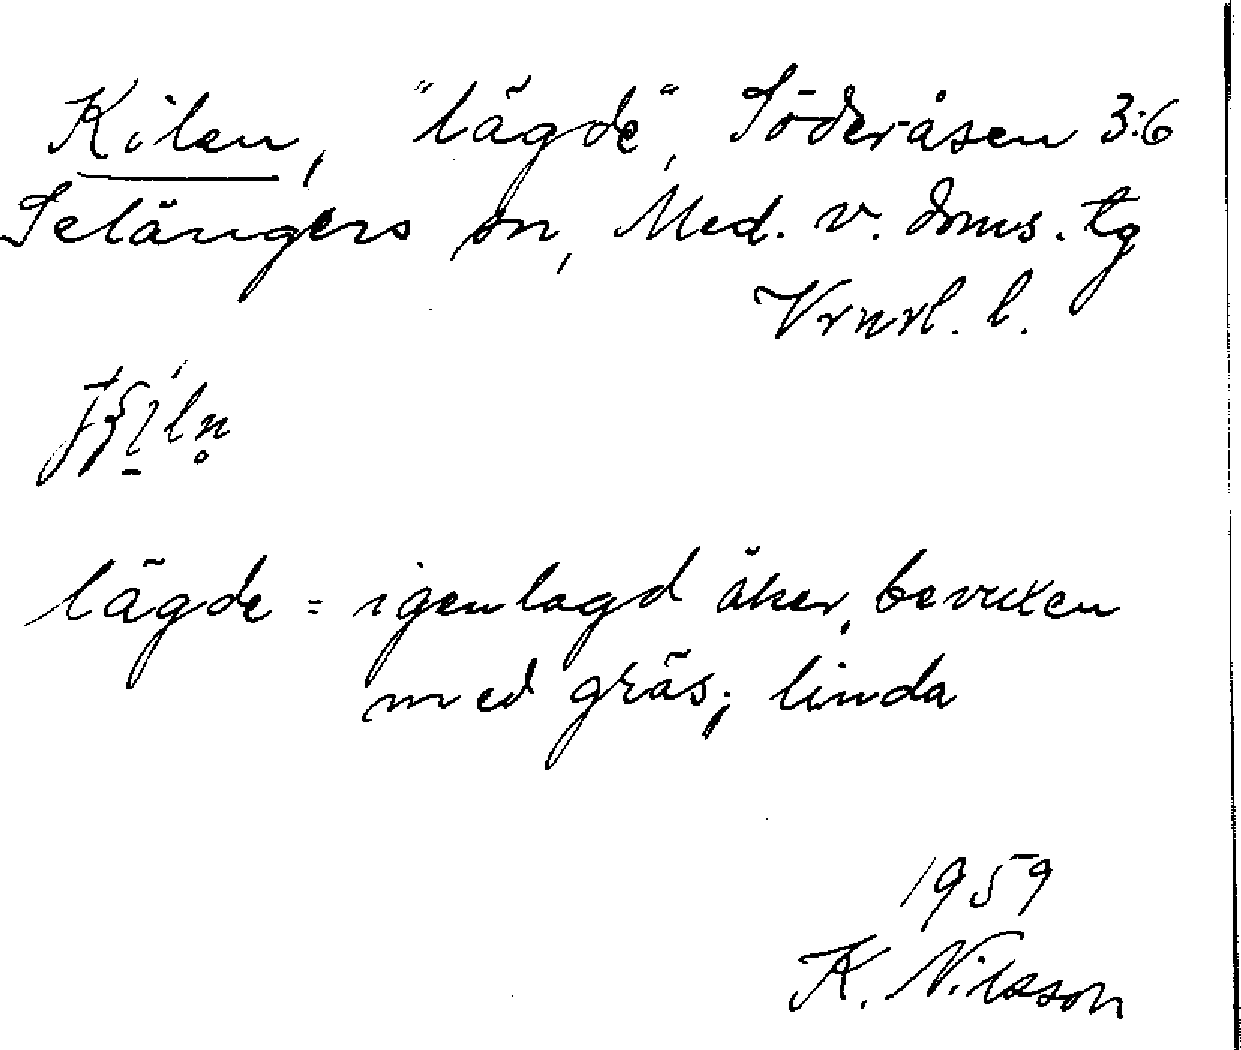 Kilen, "lägde", Söderåsen 3:6
Selångers sn, Med. v. doms. tg
Vrnrl. l.
lägde = igenlagd åker, bevuxen
med gräs; linda
1959
K. Nilsson